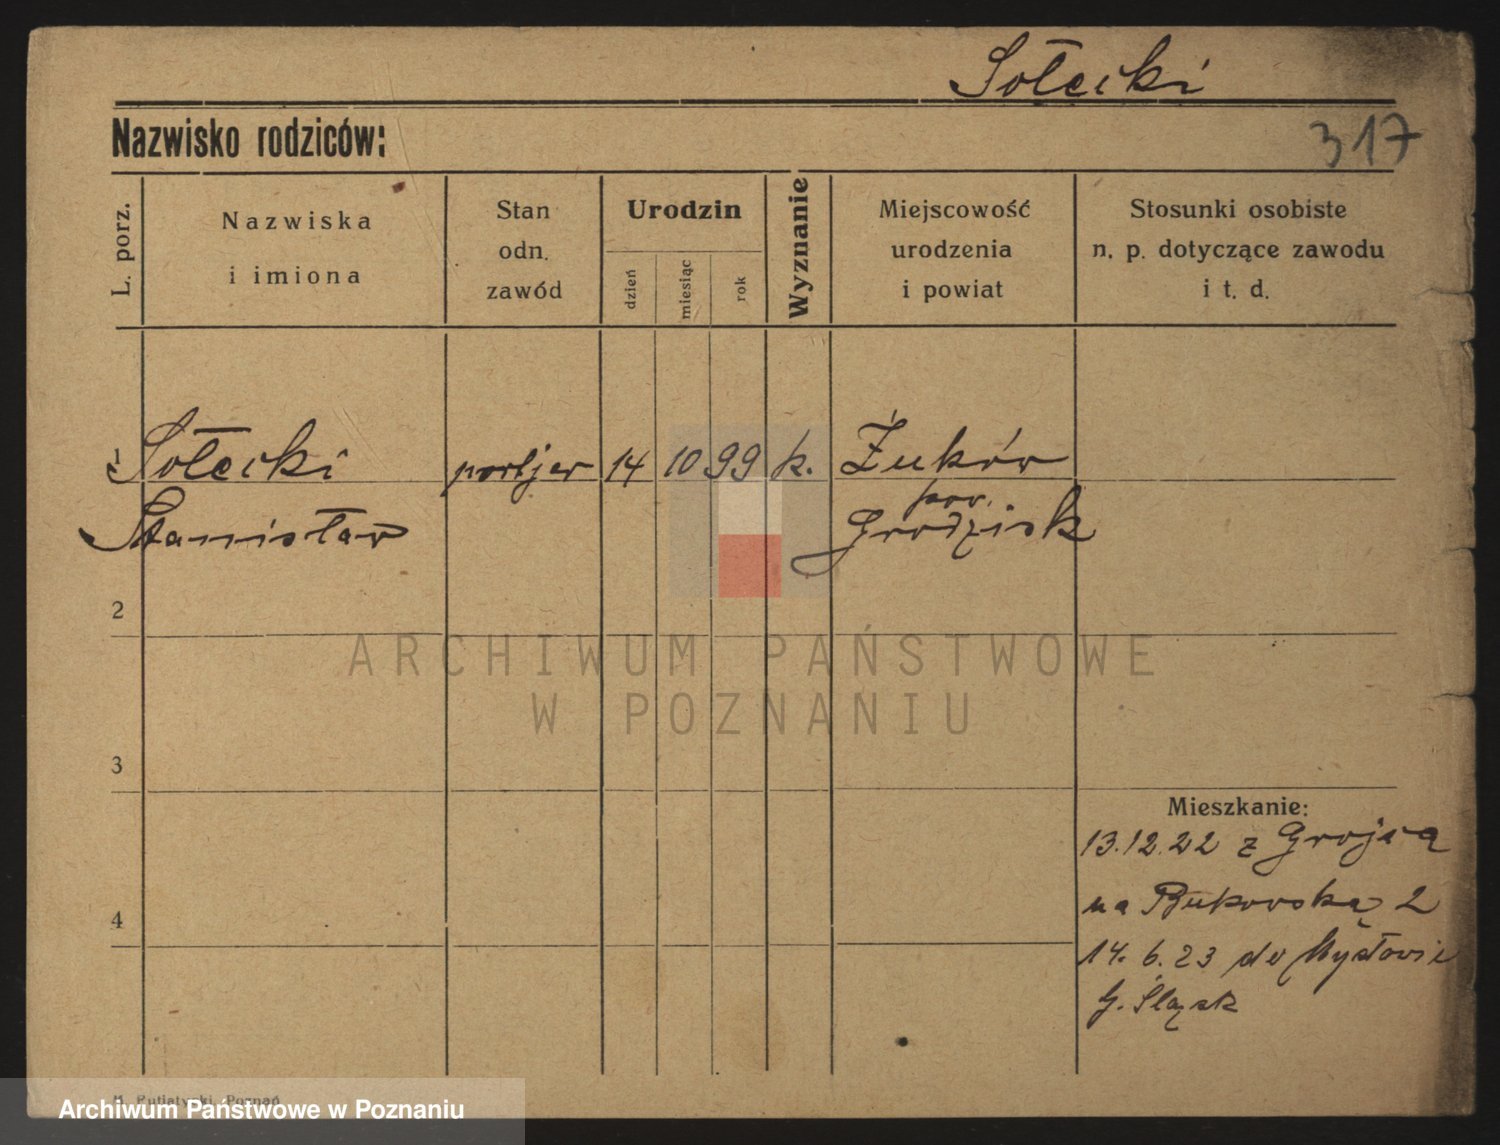 Sołecki
Nazwisko rodziców:
317
L. porz.
Nazwiska
i imiona
Stan
odn.
zawód
Urodzin
dzień
miesiąc
rok
Wyznanie
Miejscowość
urodzenia
i powiat
Stosunki osobiste
n. p. dotyczące zawodu
i t. d.
1 Sołecki portjer 14 10 99 k. Żuków
Stanisław
pow.
Grodzisk
2
ARCHIWUM PAŃSTWOWE
W POZNANIU
3
Mieszkanie:
13.12.22 z
na Bukowską 2
4
14. 6. 23 do
G. Śląsk
Putiatycki, Poznań
Archiwum Państwowe w Poznaniu